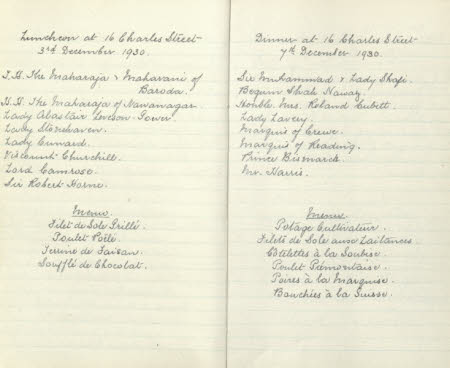 Luncheon at 16 Charles Street
3rd December 1930.
T.H. The Maharaja & Maharani of
Baroda.
H.H. The Maharaja of Nawanagar.
Lady Alastair Leveson-Gower.
Lady Stonehaven.
Lady Cunard.
Viscount Churchill.
Lord Camrose.
Sir Robert Horne.
Menu.
Filet de Sole Grillé.
Poulet Poêlé.
Terrine de Faisan.
Soufflé de Chocolat.
Dinner at 16 Charles Street
7th December 1930.
Sir Muhammad & Lady Shafi.
Begum Shah Nawaz.
Honble. Mrs. Roland Cubitt.
Lady Lavery.
Marquis of Crewe.
Marquis of Reading.
Prince Bismarck.
Mr. Harris.
Menu.
Potage Cultivateur.
Filets de Sole aux Laitances.
Côtelettes à la Soubise.
Poulet Piémontaise.
Poires à la Marquise.
Bouchées à la Suisse.